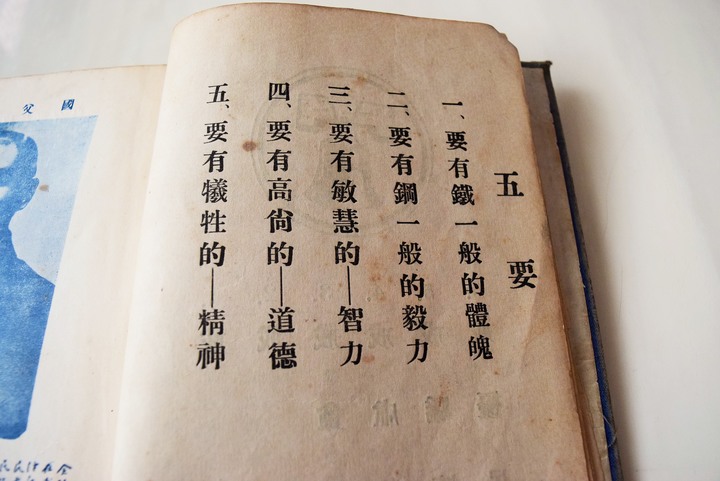 五要
一、要有鐵一般的體魄
二、要有鋼一般的毅力
三、要有敏慧的—智力
四、要有高尙的—道德
五、要有犧牲的—精神
國父